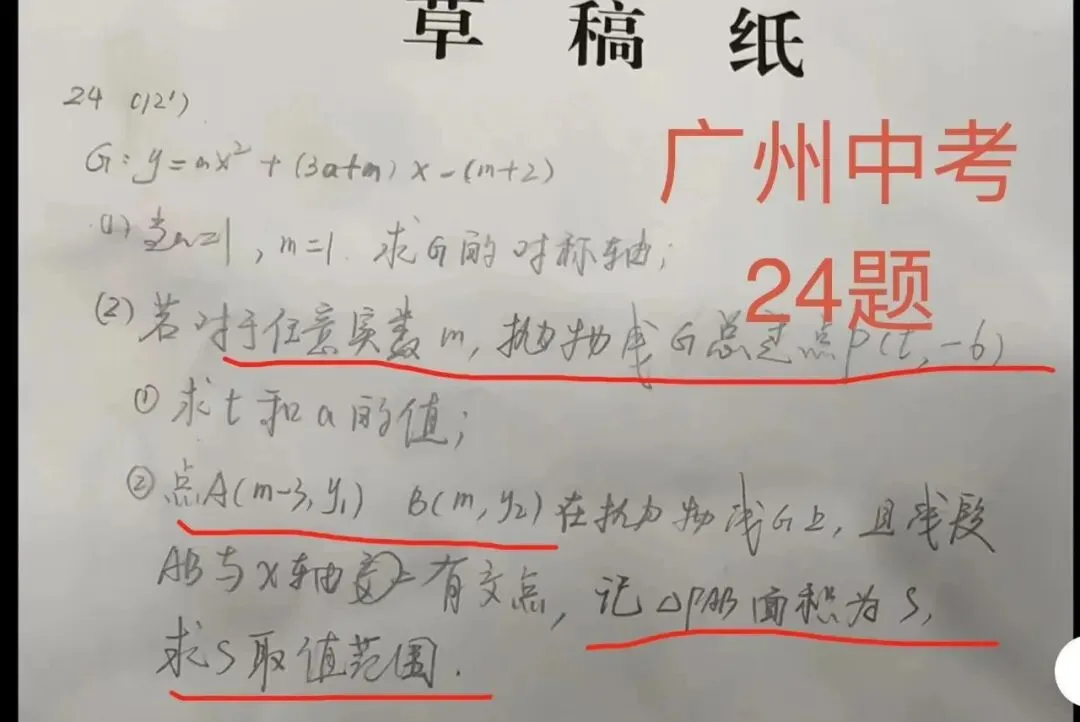 草稿纸
24 (12')
广州中考
24题
G:y=ax²+(3a+m)x-(m+2)
(1)当a=1,m=1.求G的对称轴;
(2)若对于任意实数m,抛物线G总过点P(t,-6)
①求t和a的值;
②点A(m-3,y₁) B(m,y₂)在抛物线G上,且线段
AB与x轴 有交点,记△PAB面积为S,
求S取值范围.